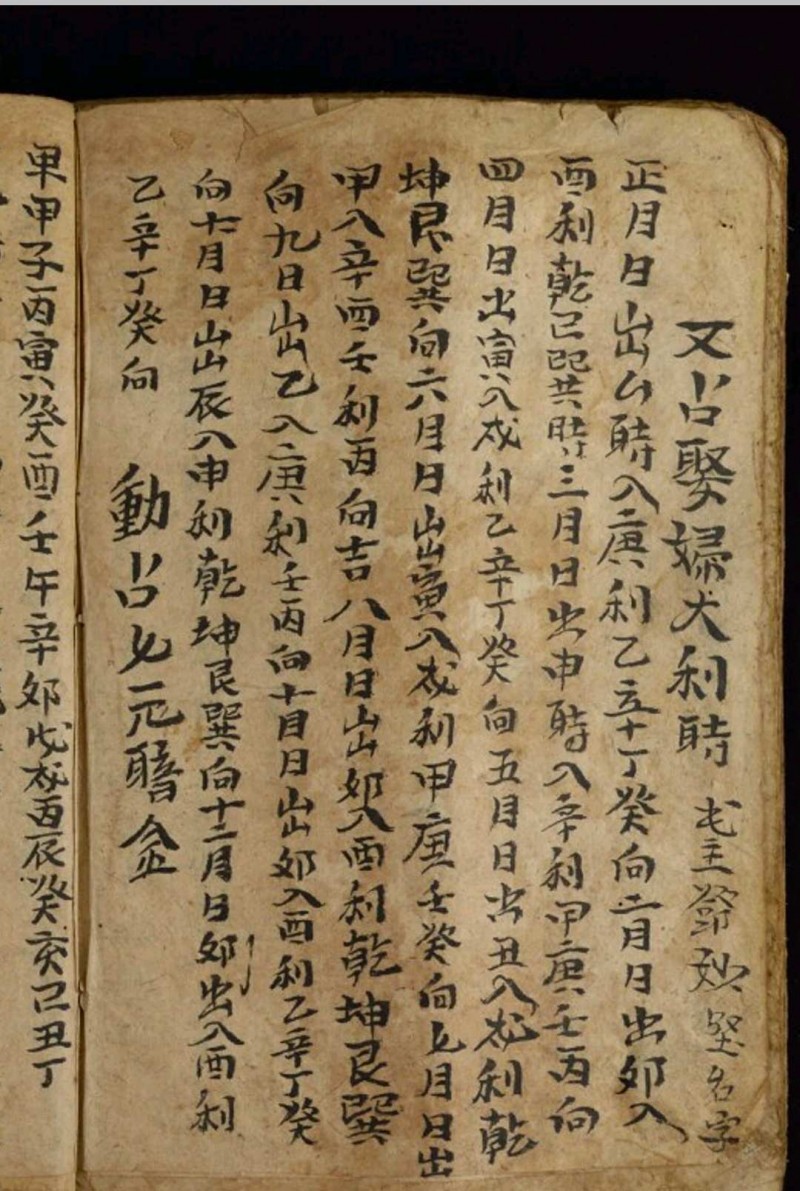 又占娶婦大利時
主 名字
正月日出 時入庚利乙辛丁癸向二月日出卯入
酉利乾 巽時三月日出申時入辛利甲庚壬丙向
四月日出寅入戍利乙辛丁癸向五月日出丑入戍利乾
坤艮巽向六月日出寅入戍利甲庚壬癸向七月日出
甲入辛酉壬利丙向吉八月日出卯入酉利乾坤艮巽
向九日出乙入庚利壬丙向十月日出卯入酉利乙辛丁癸
向十月日出辰入申利乾坤艮巽向十二月日卯出入酉利
乙辛丁癸向
動占七元
甲子丙寅癸酉壬午辛卯戊 丙辰癸亥己丑丁